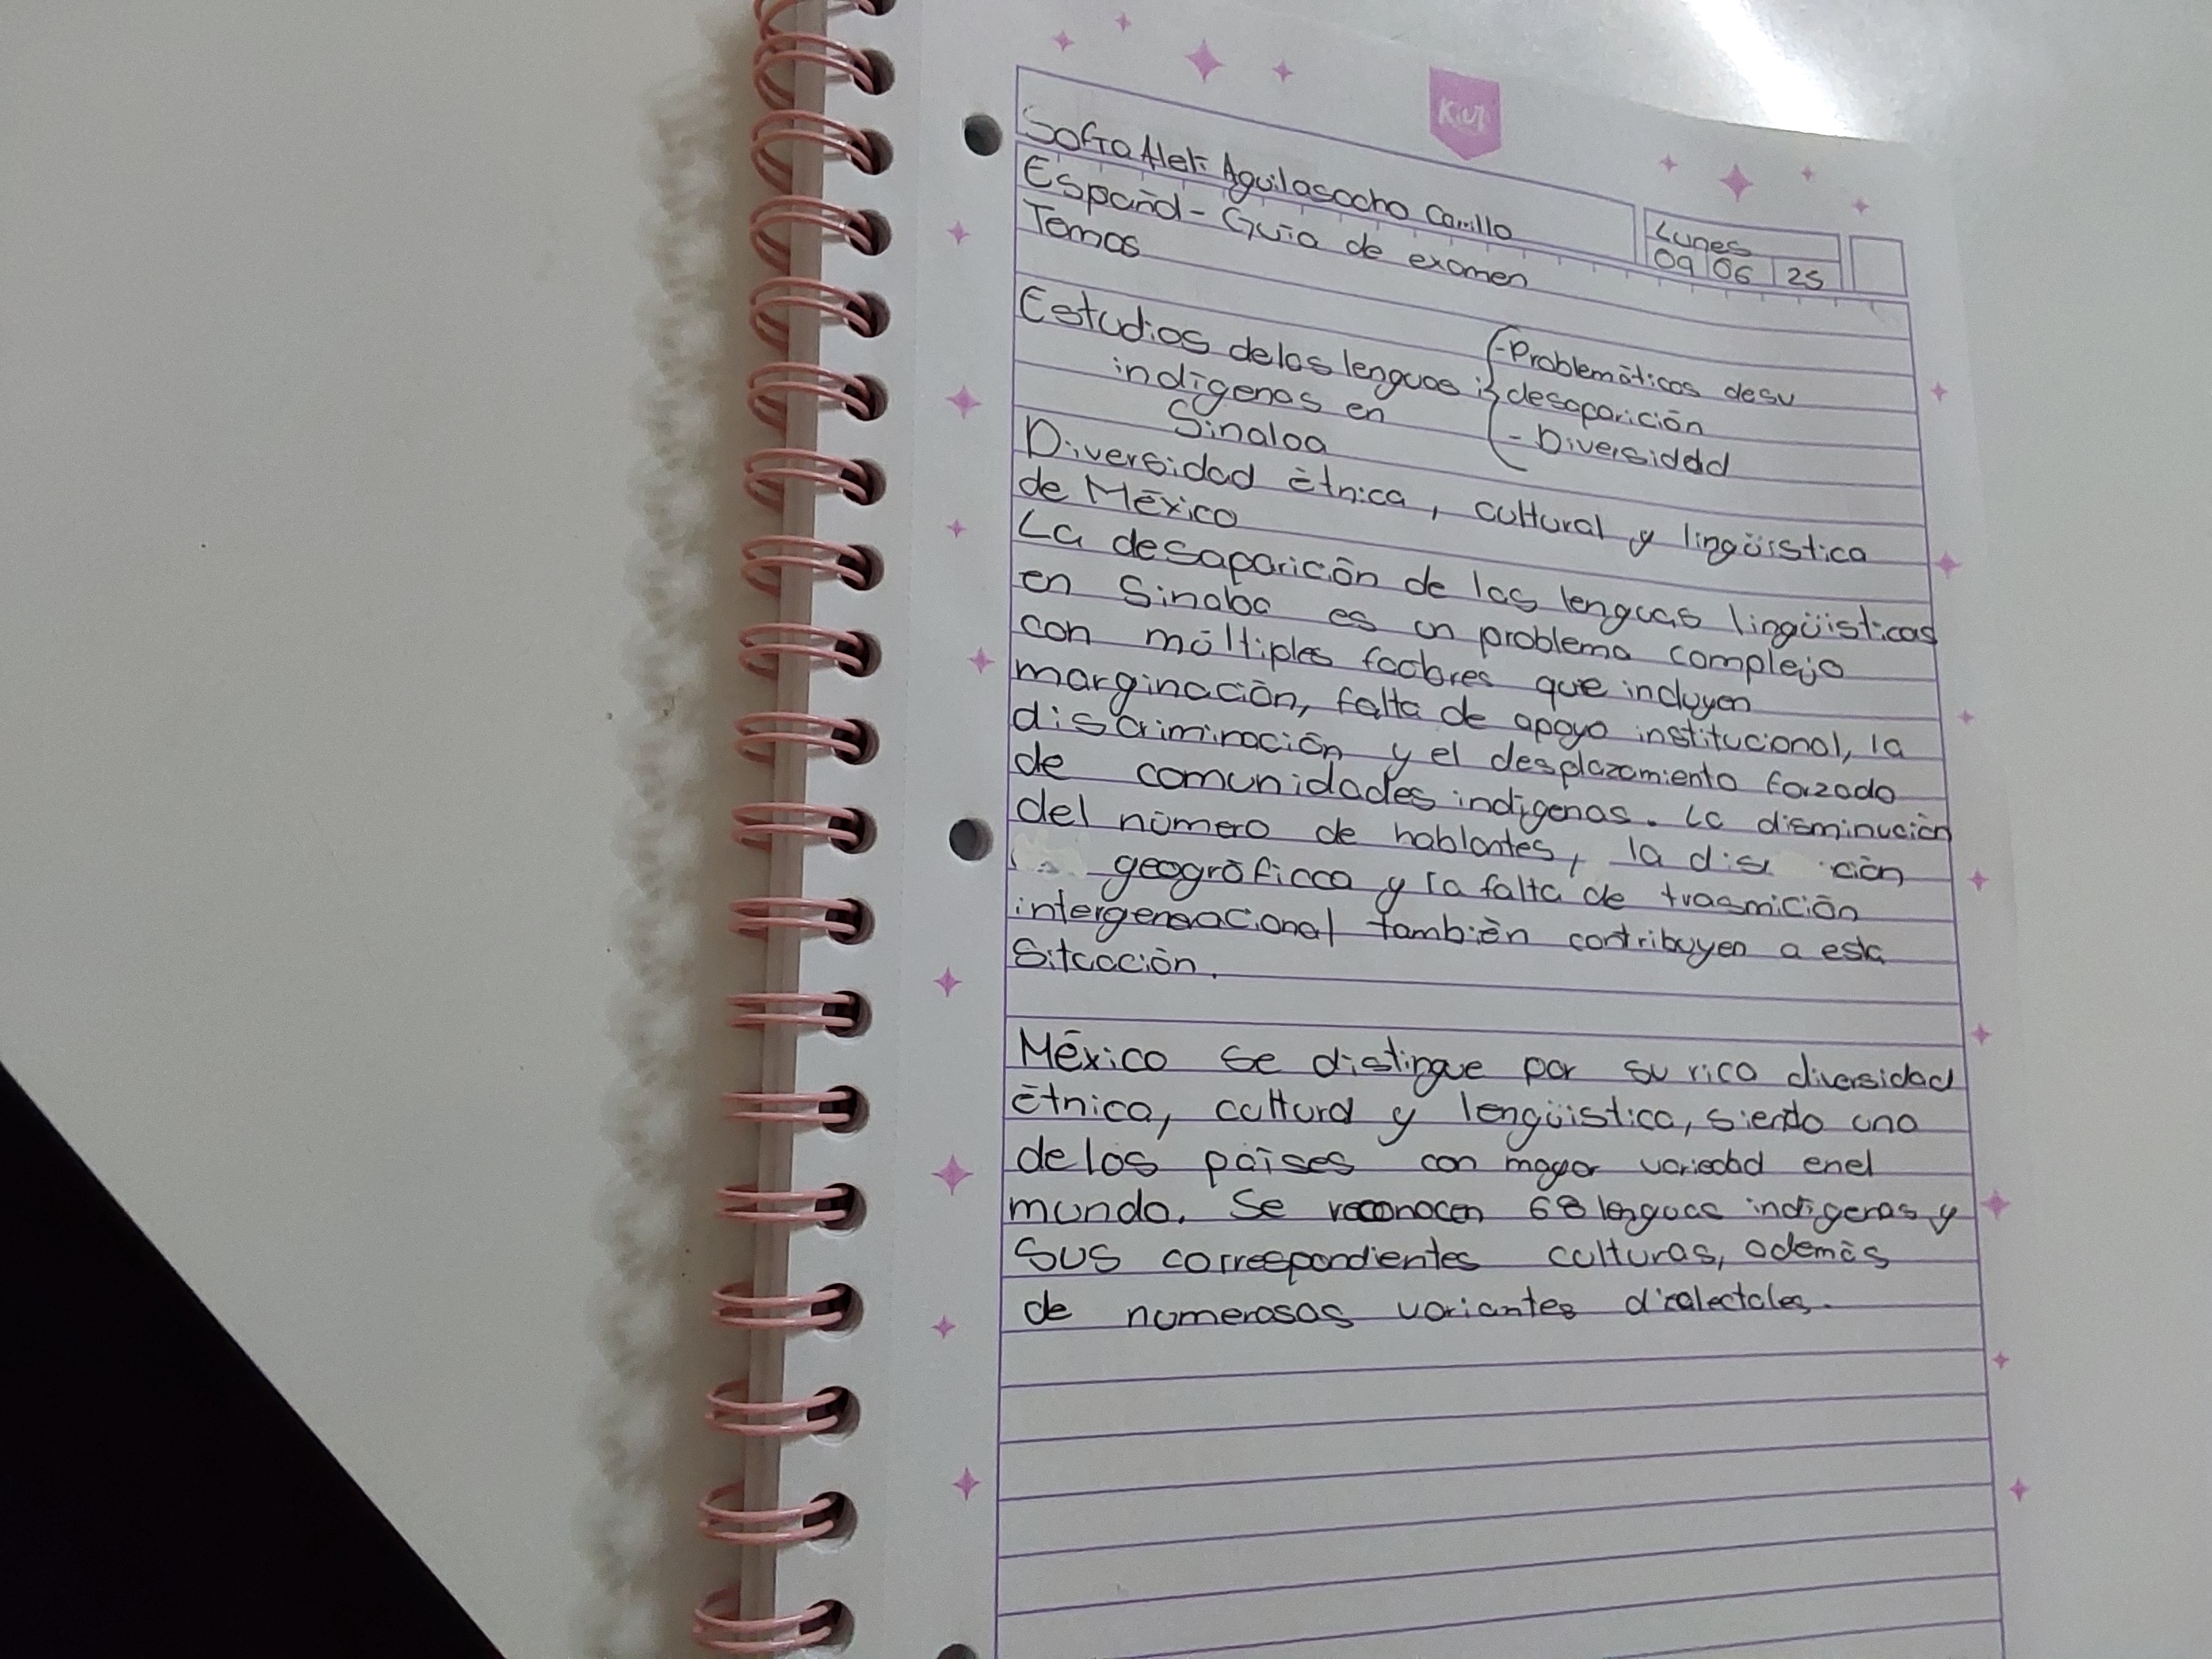 Kiut
Sofía Aleli Aguilasocho Carrillo
Lunes
09 06 25
Español - Guía de examen
Temas
Estudios de las lenguas
indígenas en
Sinaloa
- Problemáticas de su
desaparición
- Diversidad
Diversidad étnica, cultural y lingüística
de México
La desaparición de las lenguas lingüísticas
en Sinaloa es un problema complejo
con múltiples factores que incluyen
marginación, falta de apoyo institucional, la
discriminación y el desplazamiento forzado
de comunidades indígenas. La disminución
del número de hablantes, la
geográfica y la falta de trasmición
intergeneracional también contribuyen a esta
situación.
México se distingue por su rica diversidad
étnica, cultural y lengüistica, siendo uno
de los países con mayor variedad en el
mundo. Se reconocen 68 lenguas indígenas y
sus correspondientes culturas, además
de numerosas variantes dialectales.